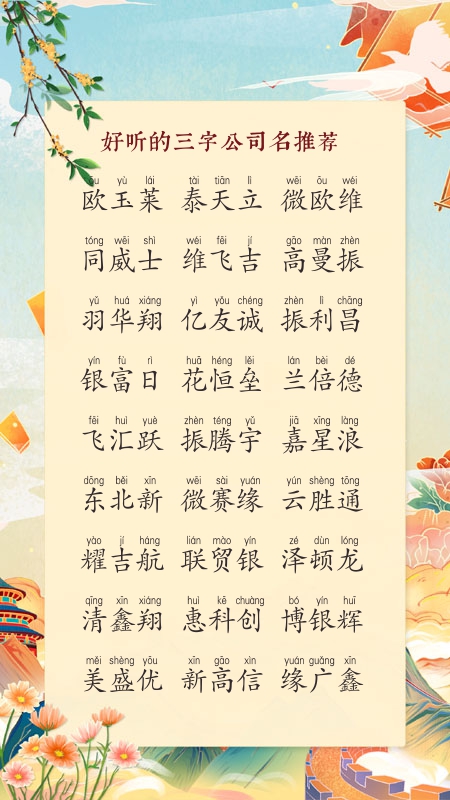 好听的三字公司名推荐
ōu yù lái tài tiān lì wēi ōu wéi
欧玉莱 泰天立 微欧维
tóng wēi shì wéi fēi jí gāo màn zhèn
同威士 维飞吉 高曼振
yǔ huá xiáng yì yǒu chéng zhèn lì chāng
羽华翔 亿友诚 振利昌
yín fù rì huā héng lěi lán bèi dé
银富日 花恒垒 兰倍德
fēi huì yuè zhèn téng yǔ jiā xīng làng
飞汇跃 振腾宇 嘉星浪
dōng běi xīn wēi sài yuán yún shèng tōng
东北新 微赛缘 云胜通
yào jí háng lián mào yín zé dùn lóng
耀吉航 联贸银 泽顿龙
qīng xīn xiáng huì kē chuàng bó yín huī
清鑫翔 惠科创 博银辉
měi shèng yōu xīn gāo xìn yuán guǎng xīn
美盛优 新高信 缘广鑫